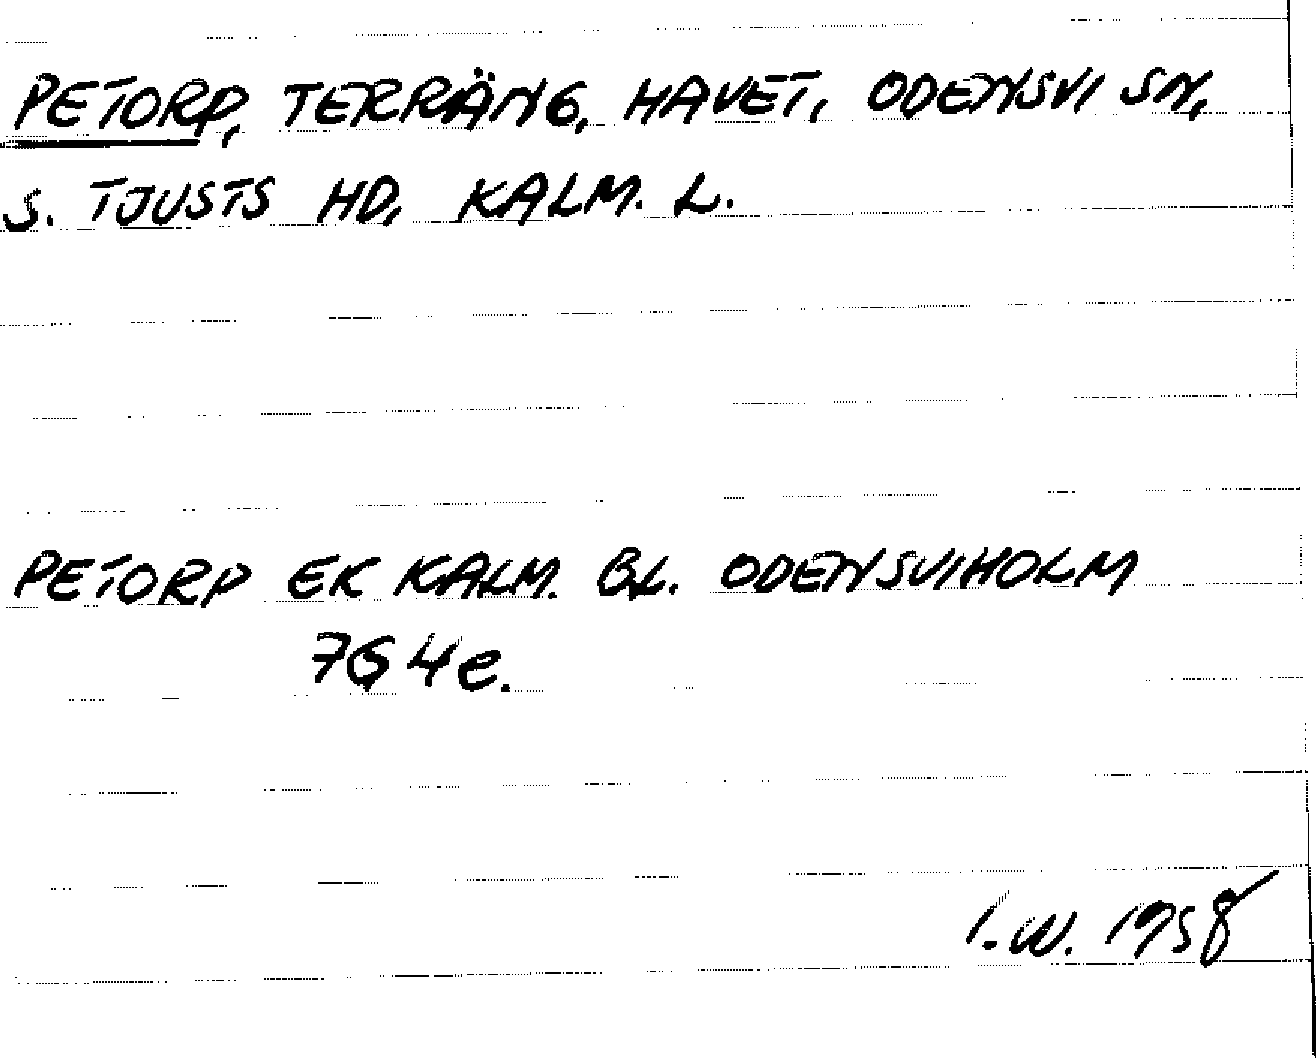 PETORP, TERRÄNG, HAVET, ODENSVI SN,
S. TJUSTS HD, KALM. L.
PETORP EK KALM. BL. ODENSVIHOLM
7G 4e.
I.W. 1958